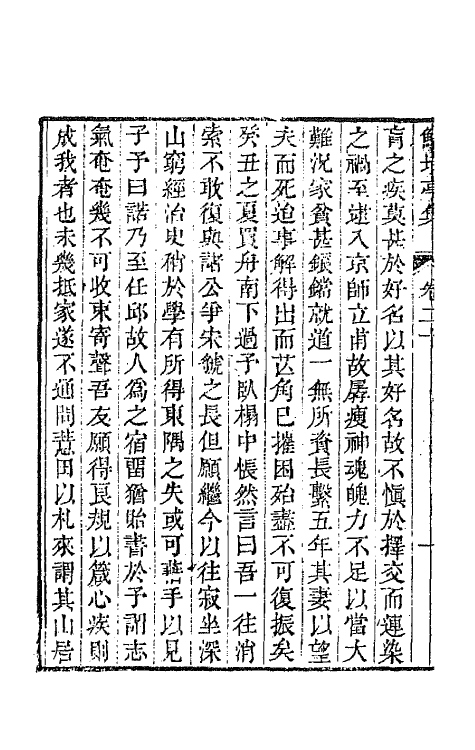 鮚埼亭集 卷二十 一
肓之疾莫甚於好名以其好名故不愼於擇交而連染
之禍至逮入京師立甫故孱瘦神魂魄力不足以當大
難況家貧甚鋃鐺就道一無所資長繫五年其妻以望
夫而死迨事解得出而芒角已摧困殆盡不可復振矣
癸丑之夏買舟南下過予臥榻中悵然言曰吾一往消
索不敢復與諸公爭宋虢之長但願繼今以往寂坐深
山窮經治史稍於學有所得東隅之失或可藉手以見
子予曰諾乃至任邱故人爲之宿畱猶貽書於予謂志
氣奄奄幾不可收柬寄聲吾友願得良規以箴心疾則
成我者也未幾抵家遂不通問薏田以札來謂其山居